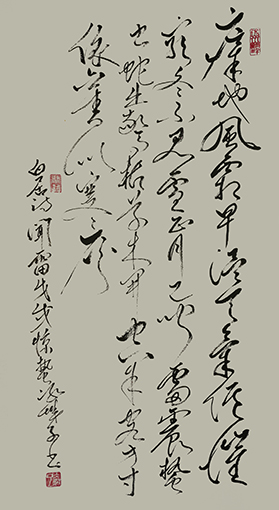 瘴地風霜早溫天氣候催
窮冬不見雪正月已聞雷震蟄
虫蛇出驚枯草木開空餘客方寸
依舊似寒灰
白居易詩聞雷戊戌惊蟄子书